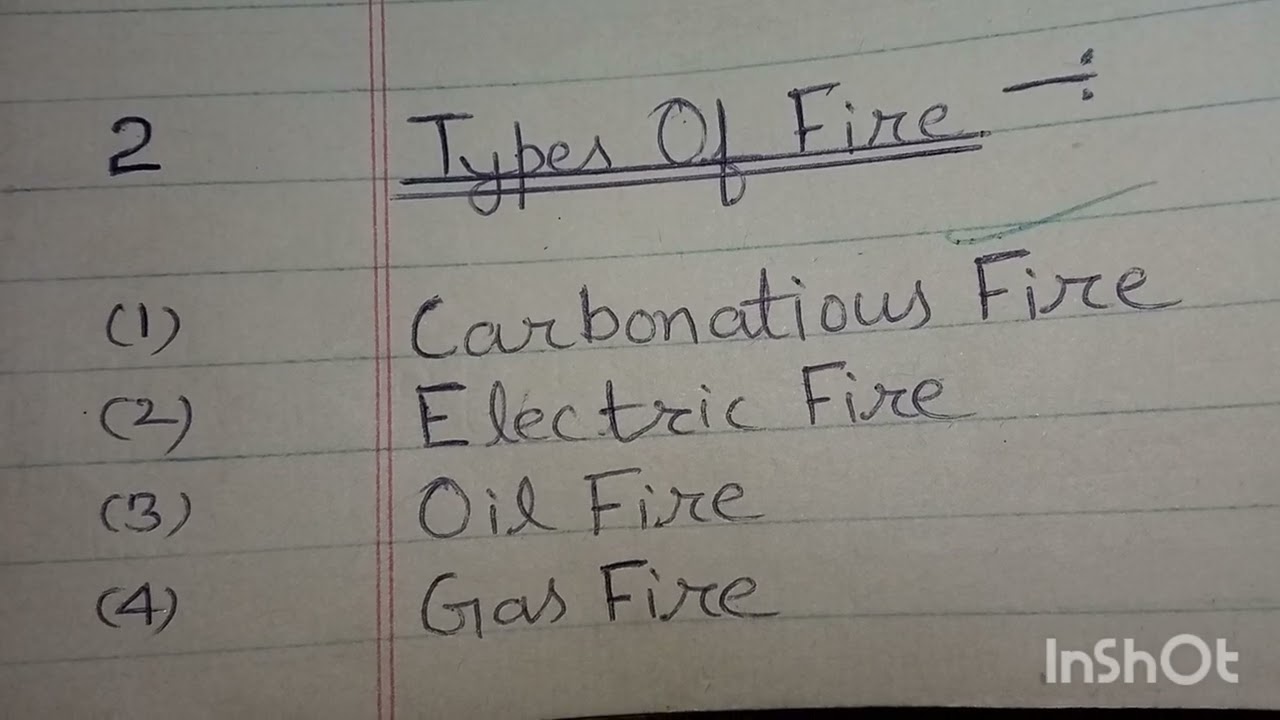 2 Types Of Fire —:
(1) Carbonatious Fire
(2) Electric Fire
(3) Oil Fire
(4) Gas Fire
InShOt